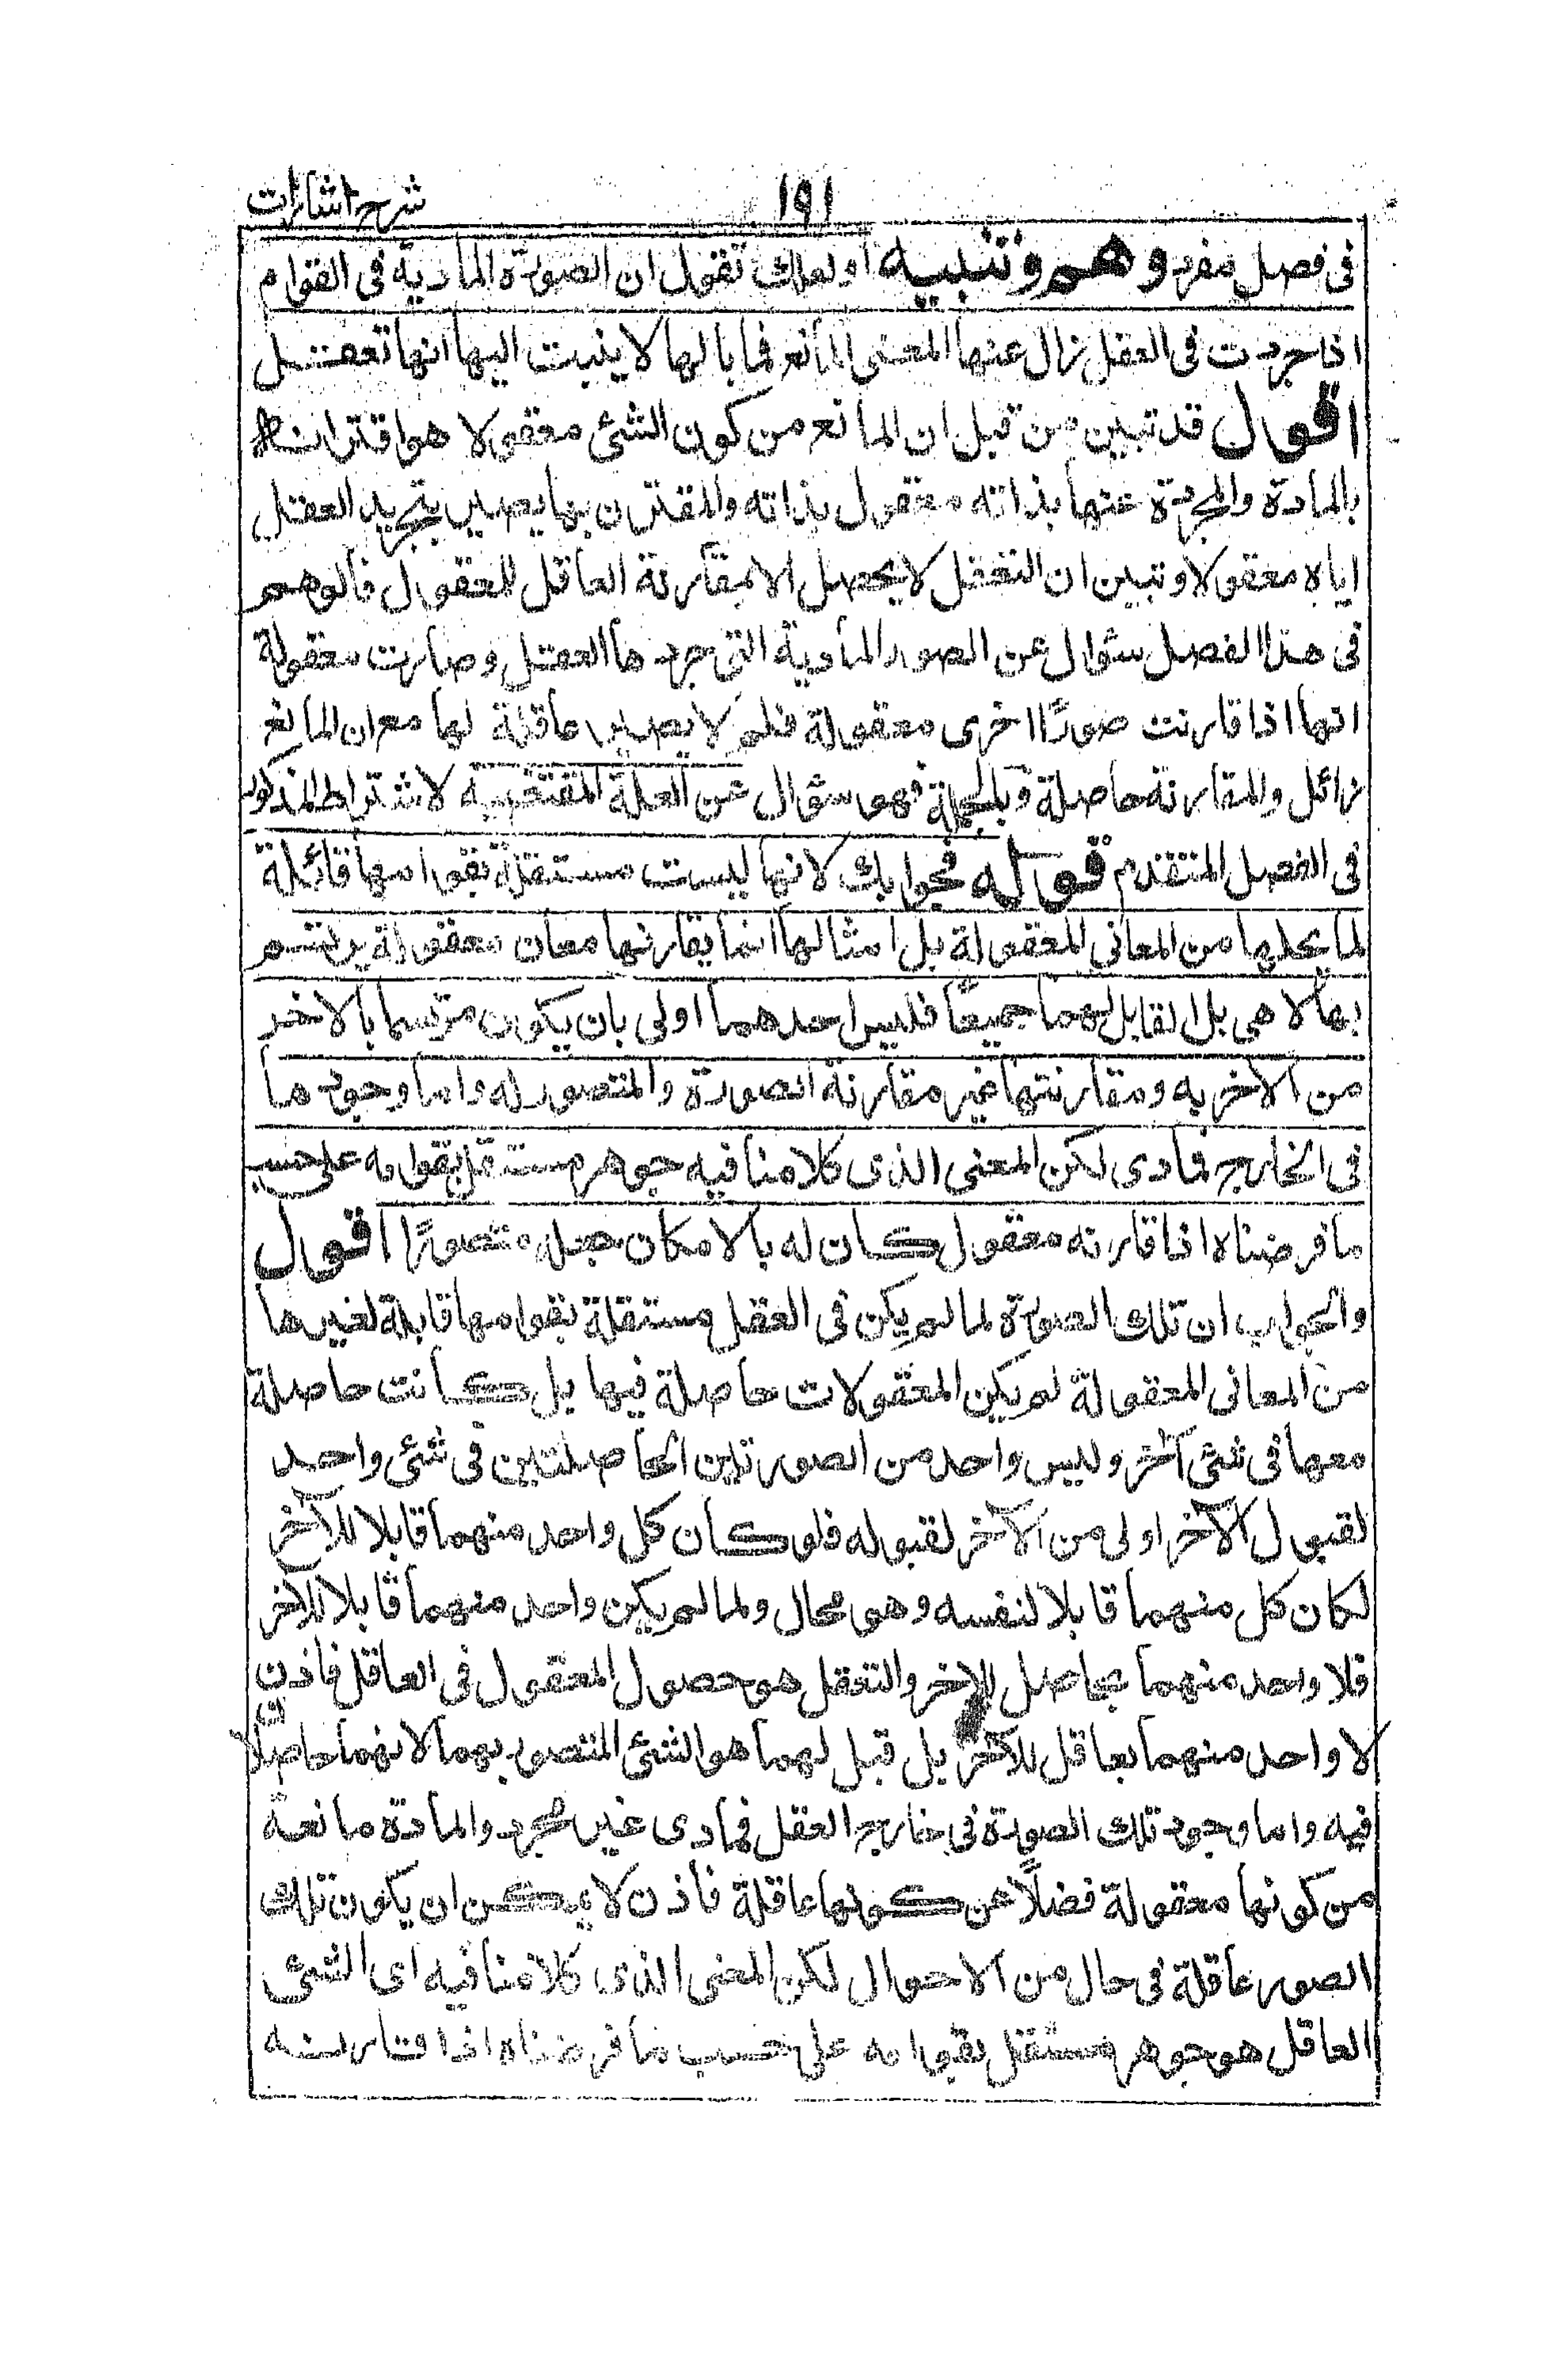 شرح اشارات
١٩١
فى فصل مفرد وهم وتنبيه او لعلك تقول ان الصورة المادية فى القوام
اذا جردت فى العقل زال عنها المعنى المانع فما بالها لا ينبت اليها انها تعقل
اقول قد تبين من قبل ان المانع من كون الشئ معقولا هو اقترانه
بالمادة والمجردة عنها بذاته معقول بذاته والمقترن بها يصير بتجريد العقل
اياه معقولا وتبين ان التعقل لا يحصل الا بمقارنة العاقل للمعقول فالوهم
فى هذا الفصل سؤال عن الصور المادية التى جردها العقل وصارت معقولة
انها اذا قارنت صورًا اخرى معقولة فلم لا يصير عاقلة لها مع ان المانع
زائل والمقارنة حاصلة وبالجملة فهو سؤال عن العلة المقتضية لاشتراط المذكور
فى الفصل المتقدم قوله فجوابك لانها ليست مستقلة بقوامها قائلة
لما يحلها من المعانى المعقولة بل امثالها انما يقارنها معان معقولة يرتسم
بها لا هى بل القابل لهما جميعًا فليس احدهما اولى بان يكون مرتسما بالاخر
من الاخر به ومقارنتها غير مقارنة الصورة والمتصور له واما وجودها
فى الخارج فمادى لكن المعنى الذى كلامنا فيه جوهر مستقل بقوامه على حسب
ما فرضناه اذا قارنه معقول كان له بالامكان جعله متصورًا اقول
والجواب ان تلك الصورة لما لم يكن فى العقل مستقلة بقوامها قابلة لغيرها
من المعانى المعقولة لم يكن المعقولات حاصلة فيها بل كانت حاصلة
معها فى شئ آخر وليس واحد من الصورتين الحاصلتين فى شئ واحد
لقبول الآخر اولى من الآخر لقبوله فلو كان كل واحد منهما قابلا للآخر
لكان كل منهما قابلا لنفسه وهو محال ولما لم يكن واحد منهما قابلا للآخر
فلا واحد منهما بحاصل للاخر والتعقل هو حصول المعقول فى العاقل فاذن
لا واحد منهما بعاقل للآخر بل قبل لهما هو الشئ المتصور بهما لانهما حاصلان
فيه واما وجود تلك الصورة فى خارج العقل فمادى غير مجرد والمادة مانعة
من كونها معقولة فضلًا عن كونها عاقلة فاذن لا يمكن ان يكون تلك
الصور عاقلة فى حال من الاحوال لكن المعنى الذى كلامنا فيه اى الشئ
العاقل هو جوهر مستقل بقوامه على حسب ما فرضناه اذا قارنه